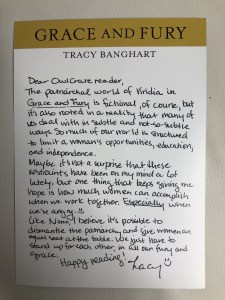 GRACE AND FURY
TRACY BANGHART
Dear OwlCrate reader,
The patriarchal world of Viridia in
Grace and Fury is fictional, of course, but
it's also rooted in a reality that many of
us deal with in subtle and not-so-subtle
ways. So much of our world is structured
to limit a woman's opportunities, education,
and independence.
Maybe it's not a surprise that these
restraints have been on my mind a lot
lately, but one thing that keeps giving me
hope is how much women can accomplish
when we work together. Especially when
we're angry.
Like Nomi, I believe it's possible to
dismantle the patriarchy and give women an
equal seat at the table. We just have to
stand up for each other, in all our fury and
grace.
Happy reading!
Tracy